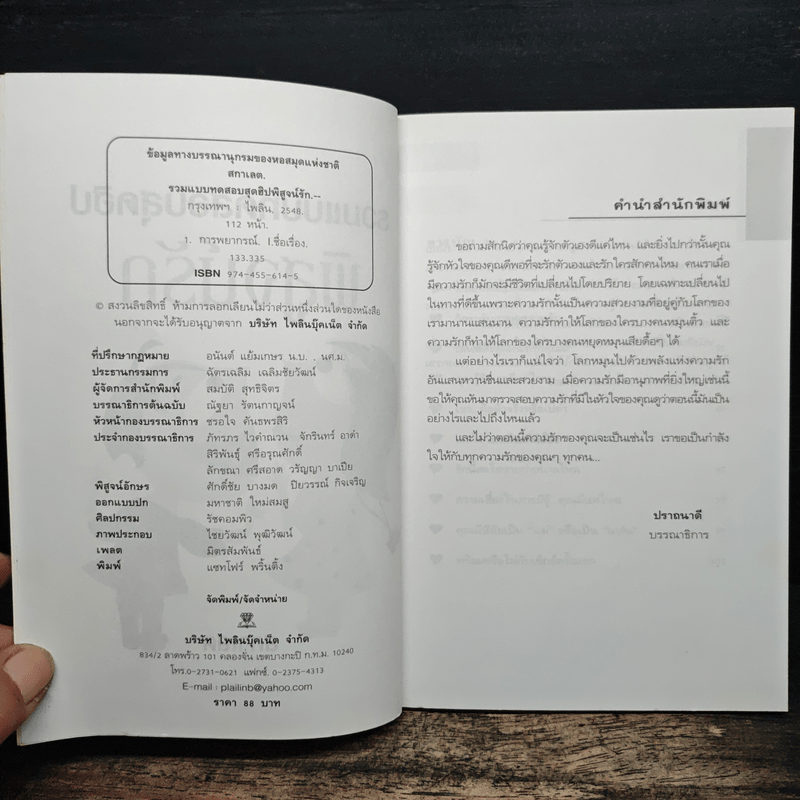 ข้อมูลทางบรรณานุกรมของหอสมุดแห่งชาติ
สกาเลต.
รวมแบบทดสอบสุดฮิปพิสูจน์รัก.--
กรุงเทพฯ : ไพลิน. 2548.
112 หน้า.
1. การพยากรณ์. I.ชื่อเรื่อง.
133.335
ISBN 974-455-614-5
© สงวนลิขสิทธิ์ ห้ามการลอกเลียนไม่ว่าส่วนหนึ่งส่วนใดของหนังสือ
นอกจากจะได้รับอนุญาตจาก บริษัท ไพลินบุ๊คเน็ต จำกัด
ที่ปรึกษากฎหมาย อนันต์ แย้มเกษร น.บ. , นศ.ม.
ประธานกรรมการ ฉัตรเฉลิม เฉลิมชัยวัฒน์
ผู้จัดการสำนักพิมพ์ สมบัติ สุทธิจิตร
บรรณาธิการต้นฉบับ ณัฐยา รัตนกาญจน์
หัวหน้ากองบรรณาธิการ ชรอใจ คันธพรสิริ
ประจำกองบรรณาธิการ ภัทรภร ไวคำณวน จักรินทร์ อาดำ
สิริพันธุ์ ศรีอรุณศักดิ์
ลักขณา ศรีสอาด วรัญญา บาเปีย
พิสูจน์อักษร ศักดิ์ชัย บางมด ปิยวรรณ์ กิจเจริญ
ออกแบบปก มหาชาติ ใหม่สมสู
ศิลปกรรม รัชคอมพิว
ภาพประกอบ ไชยวัฒน์ พุฒิวัฒน์
เพลต มิตรสัมพันธ์
พิมพ์ แซทโฟร์ พริ้นติ้ง
จัดพิมพ์/จัดจำหน่าย
บริษัท ไพลินบุ๊คเน็ต จำกัด
834/2 ลาดพร้าว 101 คลองจั่น เขตบางกะปิ ก.ท.ม. 10240
โทร.0-2731-0621 แฟกซ์. 0-2375-4313
E-mail : plailinb@yahoo.com
ราคา 88 บาท
คำนำสำนักพิมพ์
ขอถามสักนิดว่าคุณรู้จักตัวเองดีแค่ไหน และยิ่งไปกว่านั้นคุณ
รู้จักหัวใจของคุณดีพอที่จะรักตัวเองและรักใครสักคนไหม คนเราเมื่อ
มีความรักก็มักจะมีชีวิตที่เปลี่ยนไปโดยปริยาย โดยเฉพาะเปลี่ยนไป
ในทางที่ดีขึ้นเพราะความรักนั้นเป็นความสวยงามที่อยู่คู่กับโลกของ
เรามานานแสนนาน ความรักทำให้โลกของใครบางคนหมุนติ้ว และ
ความรักก็ทำให้โลกของใครบางคนหยุดหมุนเสียดื้อๆ ได้
แต่อย่างไรเราก็แน่ใจว่า โลกหมุนไปด้วยพลังแห่งความรัก
อันแสนหวานชื่นและสวยงาม เมื่อความรักมีอานุภาพที่ยิ่งใหญ่เช่นนี้
ขอให้คุณหันมาตรวจสอบความรักที่มีในหัวใจของคุณดูว่าตอนนี้มันเป็น
อย่างไรและไปถึงไหนแล้ว
และไม่ว่าตอนนี้ความรักของคุณจะเป็นเช่นไร เราขอเป็นกำลัง
ใจให้กับทุกความรักของคุณๆ ทุกคน...
ปราถนาดี
บรรณาธิการ